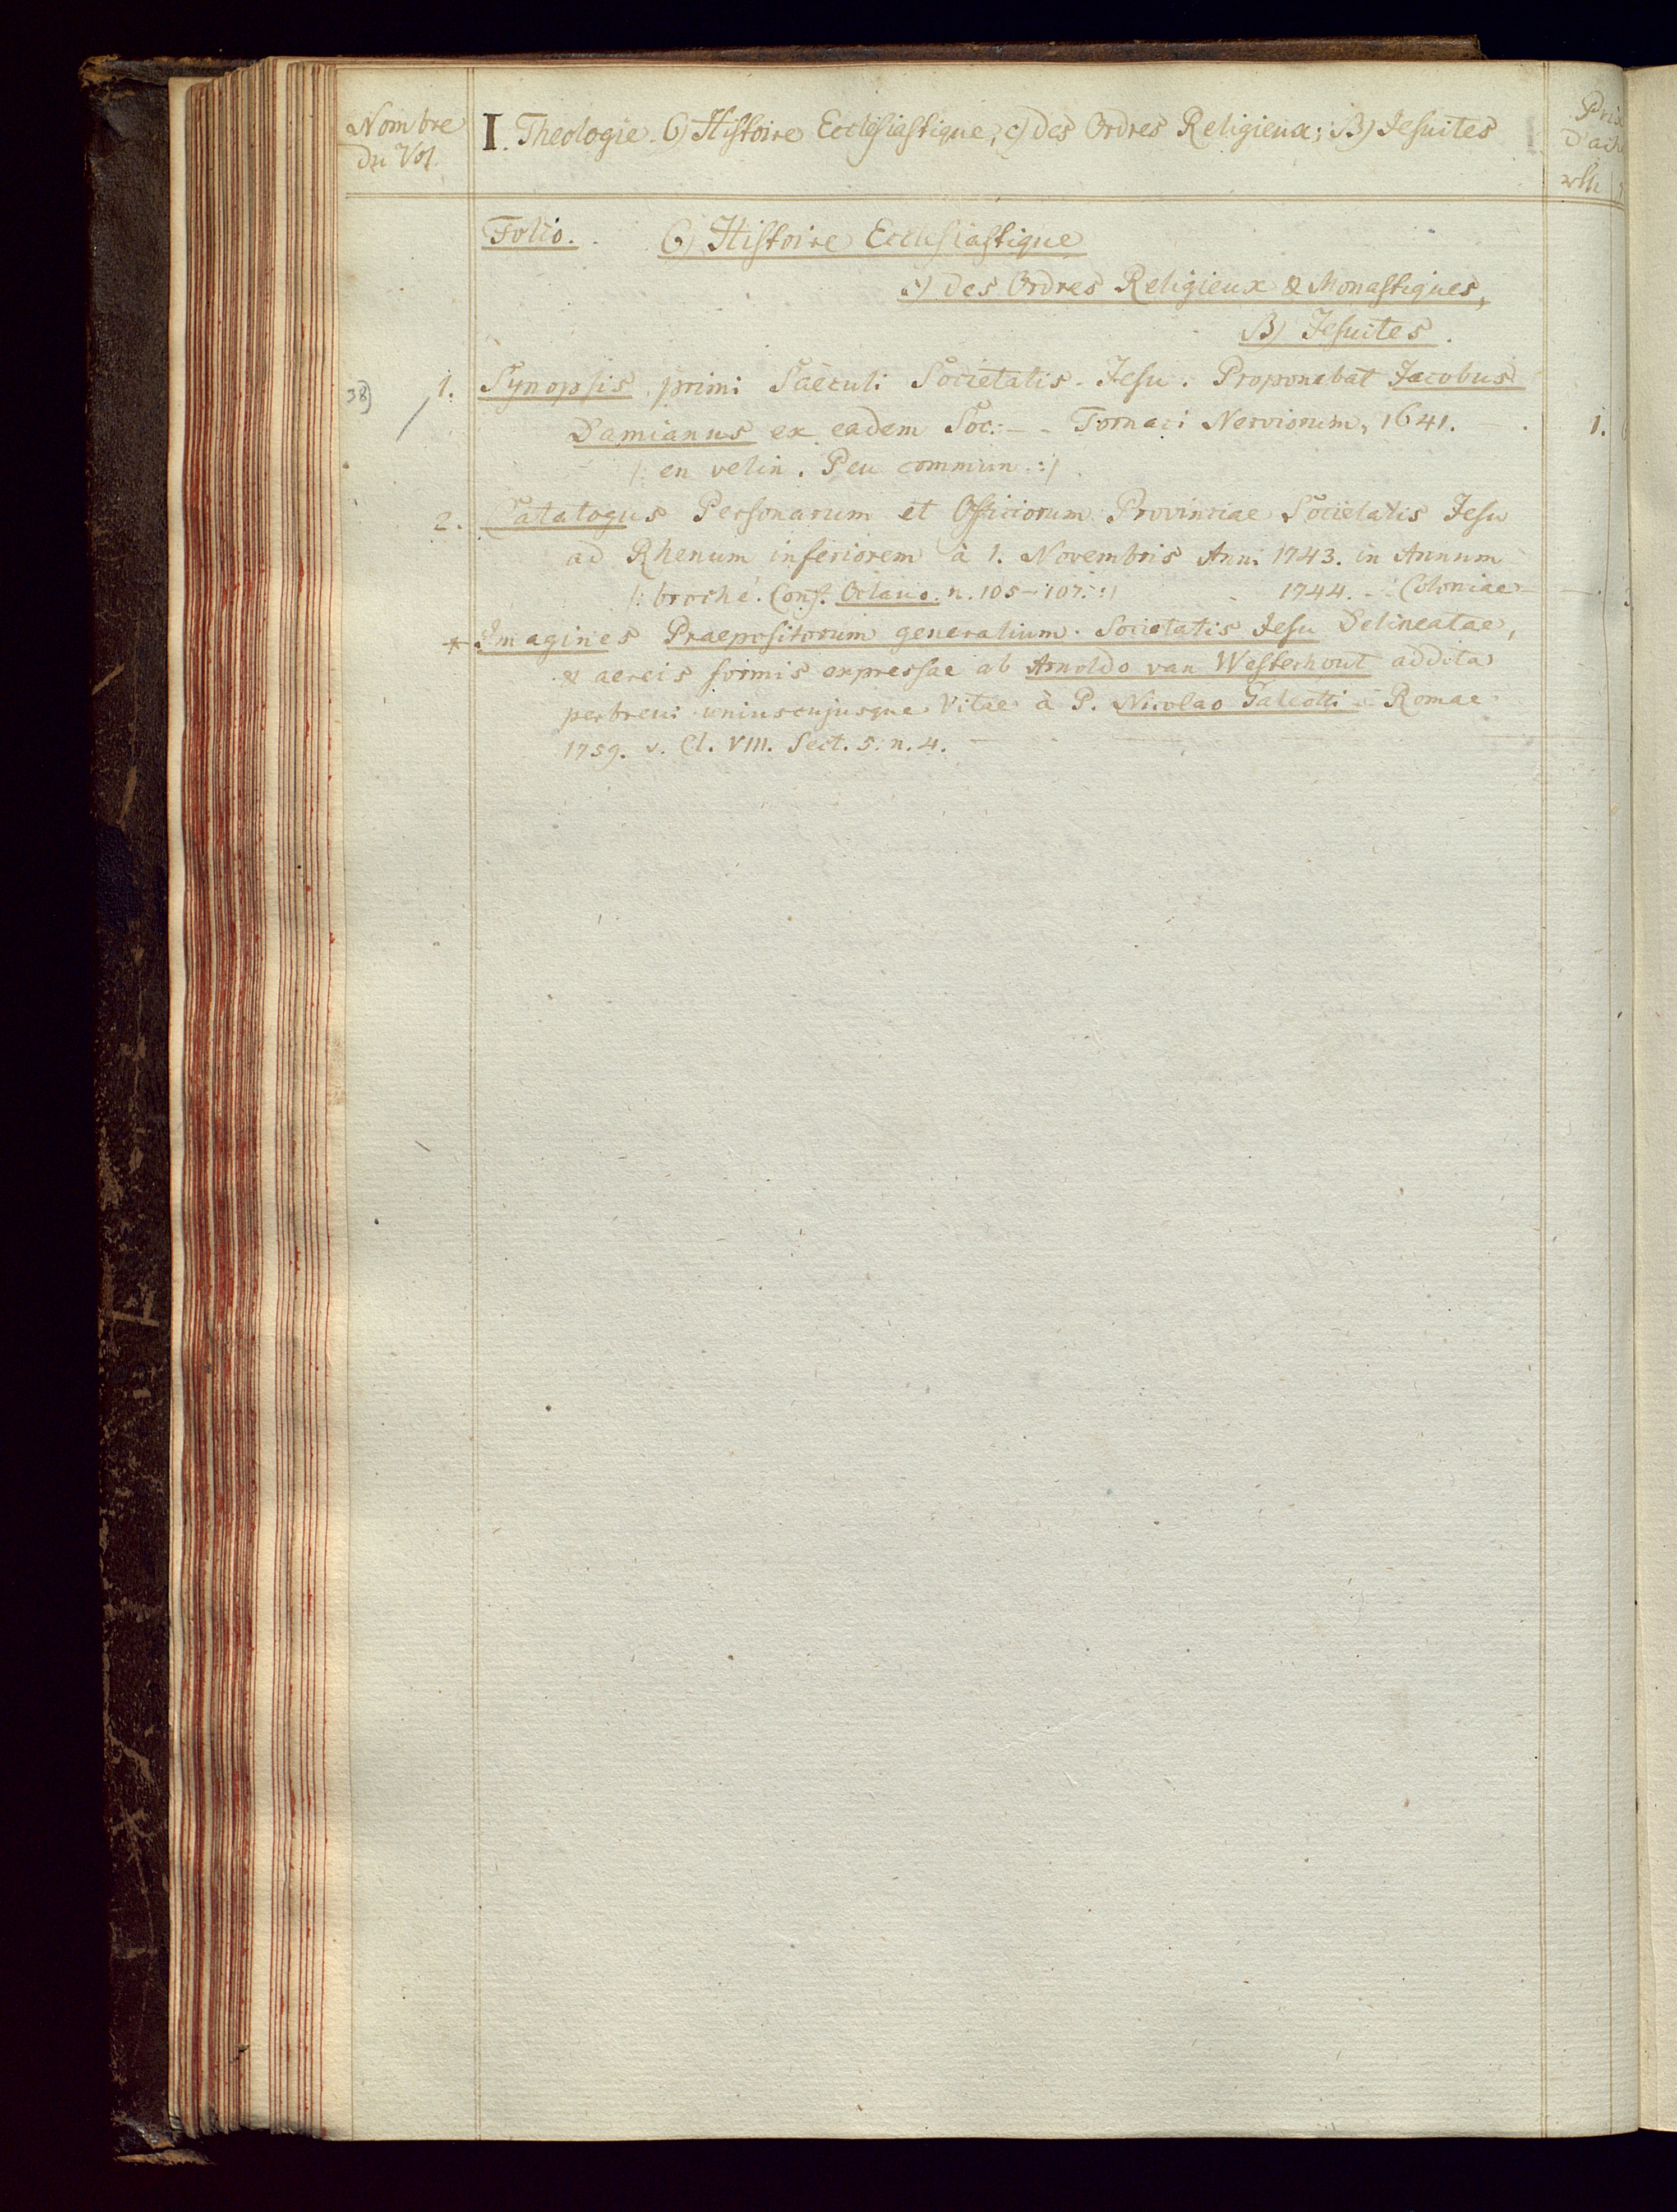 Nombre
du Vol.
I. Theologie. 6) Histoire Ecclesiastique, c) des Ordres Religieux; B) Jesuites
Prix
d'ach
rth
Folio. 6) Histoire Ecclesiastique
c) des Ordres Religieux & Monastiques,
B) Jesuites.
38) 1. Synopsis primi Saeculi Societatis Jesu. Proponebat Jacobus
Damianus ex eadem Soc. - - Tornaci Nerviorum, 1641. 1.
|: en velin. Peu commun :|
2. Catalogus Personarum et Officiorum Provinciae Societatis Jesu
ad Rhenum inferiorem à 1. Novembris Anni 1743. in Annum
|: broché. Conf. Octavo. n. 105-107. :| 1744. - Coloniae
* Imagines Praepositorum generalium Societatis Jesu Delineatae,
& aereis formis expressae ab Arnoldo van Westerhout addita
perbrevi uniuscujusque Vitae à P. Nicolao Galeotti - Romae
1759. v. Cl. VIII. Sect. 5. n. 4.